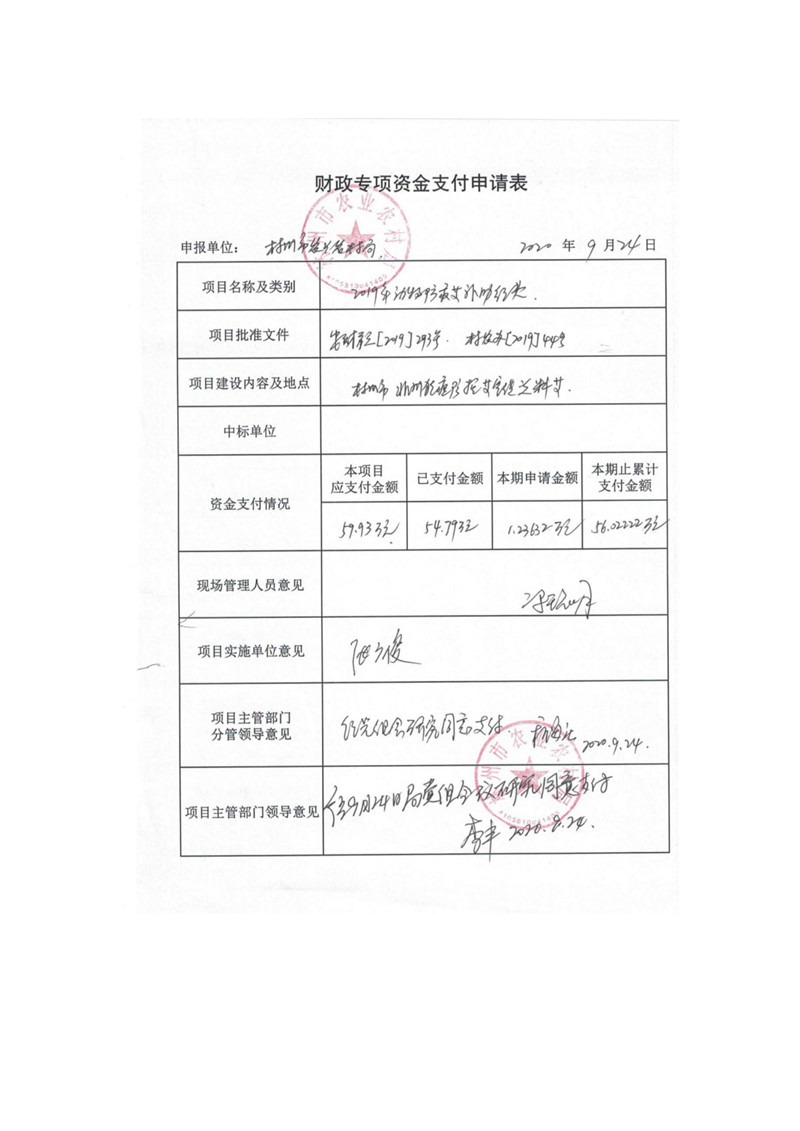 财政专项资金支付申请表
申报单位: 林州市农业农村局 2020 年 9 月 24 日
项目名称及类别 2019年动物防疫等补助经费.
项目批准文件 [2019]293号. [2019]44号
项目建设内容及地点 林州市 非洲猪瘟
中标单位
资金支付情况
本项目 应支付金额 已支付金额 本期申请金额 本期止累计 支付金额
59.93万元 54.79万元 1.23632万元 56.02222万元
现场管理人员意见
项目实施单位意见
项目主管部门
分管领导意见 经党组会研究同意支付. 2020.9.24.
项目主管部门领导意见 经9月24日局党组会议研究同意支付
李丰 2020.9.24.
林州市农业农村局
林州市农业农村局